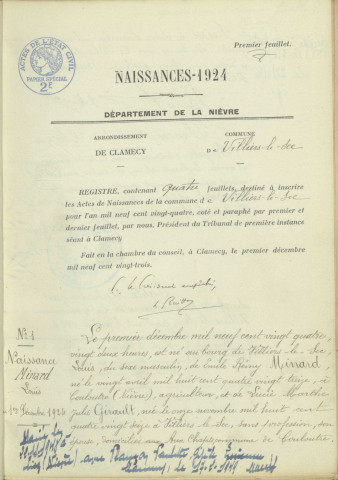 Premier feuillet.
ACTES DE L'ETAT CIVIL
PAPIER SPECIAL
2F
NAISSANCES-1924
DÉPARTEMENT DE LA NIÈVRE
ARRONDISSEMENT
DE CLAMECY
COMMUNE
De Villiers-le-Sec
REGISTRE, contenant quatre feuillets, destiné à inscrire
les Actes de Naissances de la commune de Villiers-le-Sec
pour l'an mil neuf cent vingt-quatre, coté et paraphé par premier et
dernier feuillet, par nous, Président du Tribunal de première instance
séant à Clamecy
Fait en la chambre du conseil, à Clamecy, le premier décembre
mil neuf cent vingt-trois.
N° 1
Naissance
Minard
Louis
1er Décembre 1924
Le premier décembre mil neuf cent vingt quatre,
vingt deux heures, est né au bourg de Villiers-le-Sec
Louis, du sexe masculin, de Emile Rémy Minard,
né le vingt avril mil huit cent quatre vingt treize, à
(Nièvre), agriculteur, et de Marthe
Girault, née le onze novembre mil huit cent
quatre vingt seize à Villiers-le-Sec, sans profession, son
épouse, domiciliés